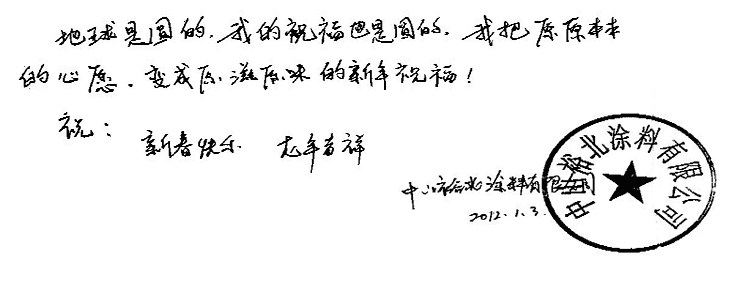 地球是圆的,我的祝福也是圆的,我把原原本本
的心愿,变成原滋原味的新年祝福!
祝:
新春快乐 龙年吉祥
中山裕北涂料有限公司
2012.1.3.
裕北涂料有限公司